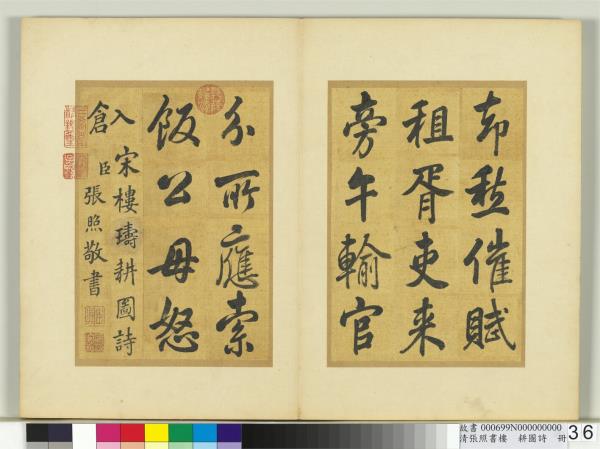 却愁催賦
租胥吏來
旁午輸官
分所應索
飯公毋怒
入 宋樓璹耕圖詩
倉 臣張照敬書
故書 000699N000000000
清張照書樓 耕圖詩 冊
36